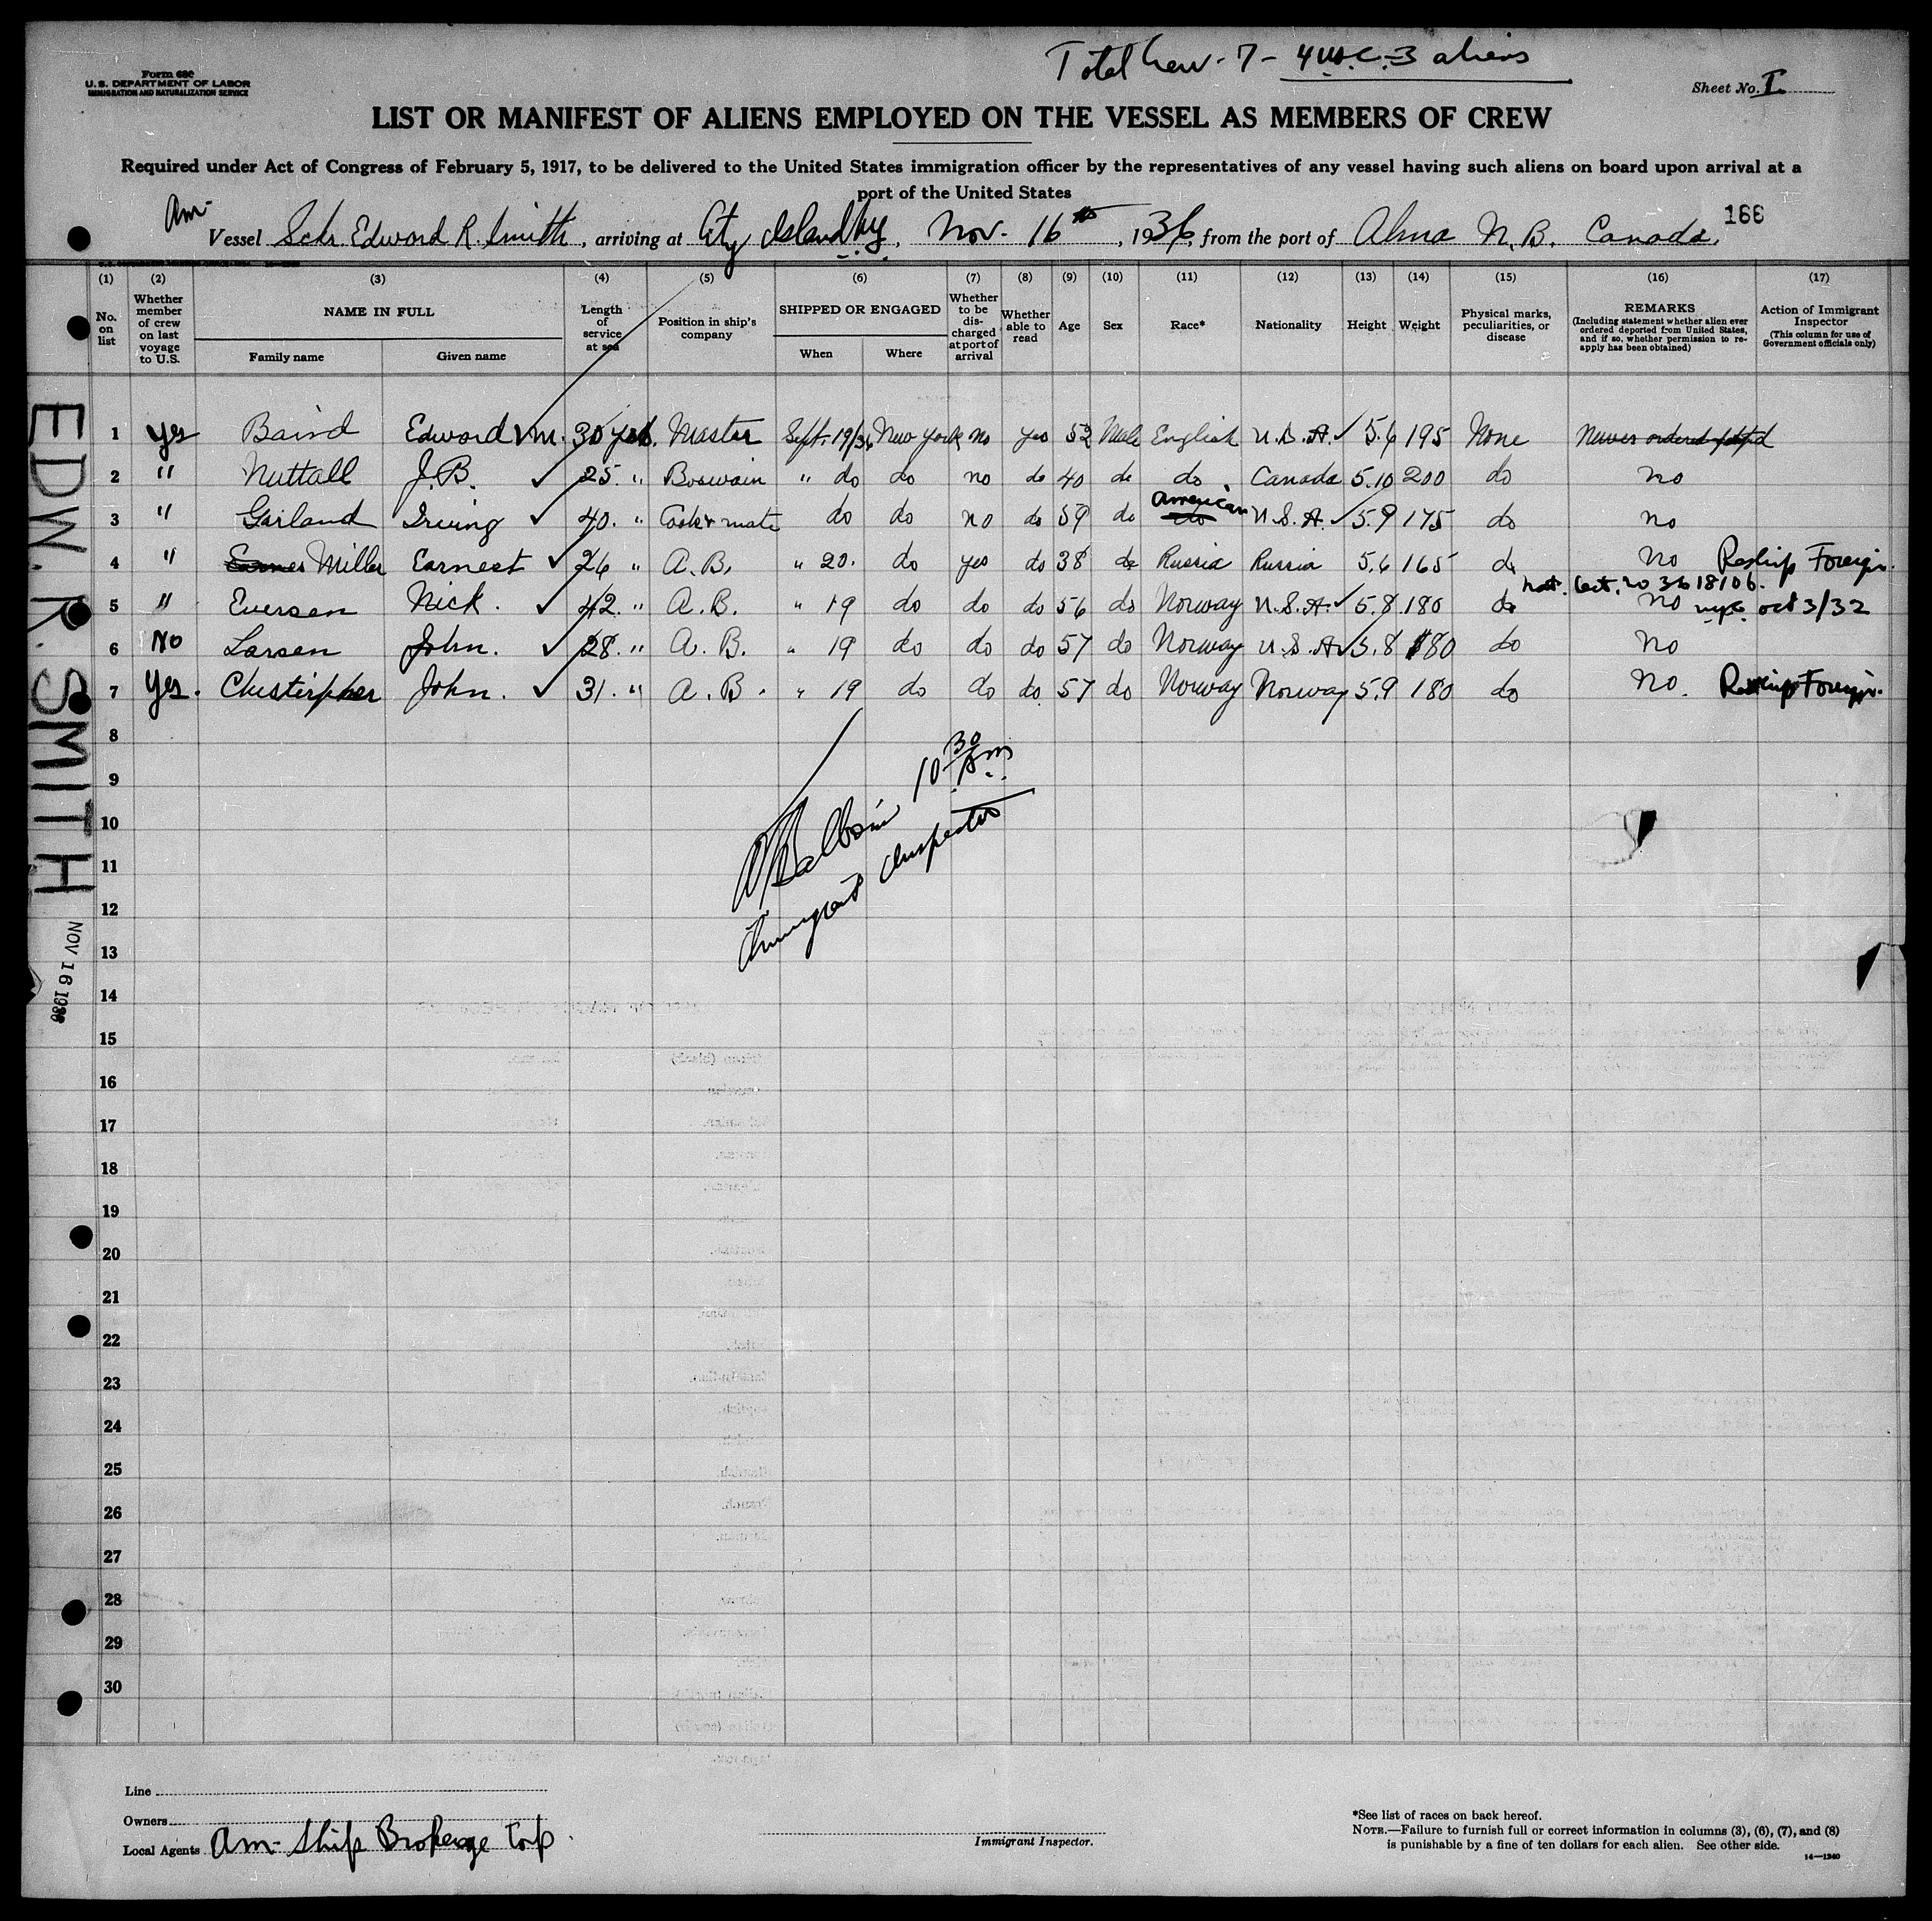 Total Crew - 7 - 4 U.S.C. - 3 aliens
Form 680
U. S. DEPARTMENT OF LABOR
IMMIGRATION AND NATURALIZATION SERVICE
Sheet No. I
LIST OR MANIFEST OF ALIENS EMPLOYED ON THE VESSEL AS MEMBERS OF CREW
Required under Act of Congress of February 5, 1917, to be delivered to the United States immigration officer by the representatives of any vessel having such aliens on board upon arrival at a
port of the United States
Am-
Vessel Schr. Edward R. Smith, arriving at City Island N.Y., Nov. 16th, 1936, from the port of Alma N. B. Canada. 166
(1) (2) (3) (4) (5) (6) (7) (8) (9) (10) (11) (12) (13) (14) (15) (16) (17)
No. on list
Whether member of crew on last voyage to U.S.
NAME IN FULL
Family name
Given name
Length of service at sea
Position in ship's company
SHIPPED OR ENGAGED
When
Where
Whether to be discharged at port of arrival
Whether able to read
Age
Sex
Race*
Nationality
Height
Weight
Physical marks, peculiarities, or disease
REMARKS
(Including statement whether alien ever ordered deported from United States, and if so, whether permission to reapply has been obtained)
Action of Immigrant Inspector
(This column for use of Government officials only)
1 Yes Baird Edward M. 30 yrs. Master Sept. 19/36 New York no yes 52 Male English U.S.A. ✓ 5.6 195 None Never ordered
2 " Nuttall J.B. ✓ 25. " Boswain " do do no do 40 do do Canada 5.10 200 do no
3 " Garland Irving ✓ 40. " Cook & mate do do no do 59 do do American U.S.A. ✓ 5.9 175 do no
4 " Miller Earnest ✓ 26 " A.B. " 20. do yes do 38 do Russia Russia 5.6 165 do No Reship Foreign.
nat. Cert. no 3618106.
5 " Eversen Nick. ✓ 42. " A.B. " 19 do do do 56 do Norway U.S.A. ✓ 5.8 180 do no nyc. oct 3/32
6 No Larsen John. ✓ 28. " A.B. " 19 do do do 57 do Norway U.S.A. ✓ 5.8 180 do no
7 Yes. John. ✓ 31. " A.B. " 19 do do do. 57 do Norway Norway 5.9 180 do No. Reship Foreign.
8
9
10
11
12
13
14
15
16
17
18
19
20
21
22
23
24
25
26
27
28
29
30
10 30 Am
Immigrant Inspector
EDW. R. SMITH
NOV 16 1936
Line
Owners
Local Agents Am- Ship Brokerage Corp.
Immigrant Inspector.
*See list of races on back hereof.
NOTE.—Failure to furnish full or correct information in columns (3), (6), (7), and (8)
is punishable by a fine of ten dollars for each alien. See other side.
14—1240